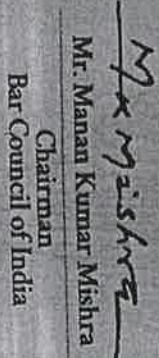 M K Mishra
Mr. Manan Kumar Mishra
Chairman
Bar Council of India